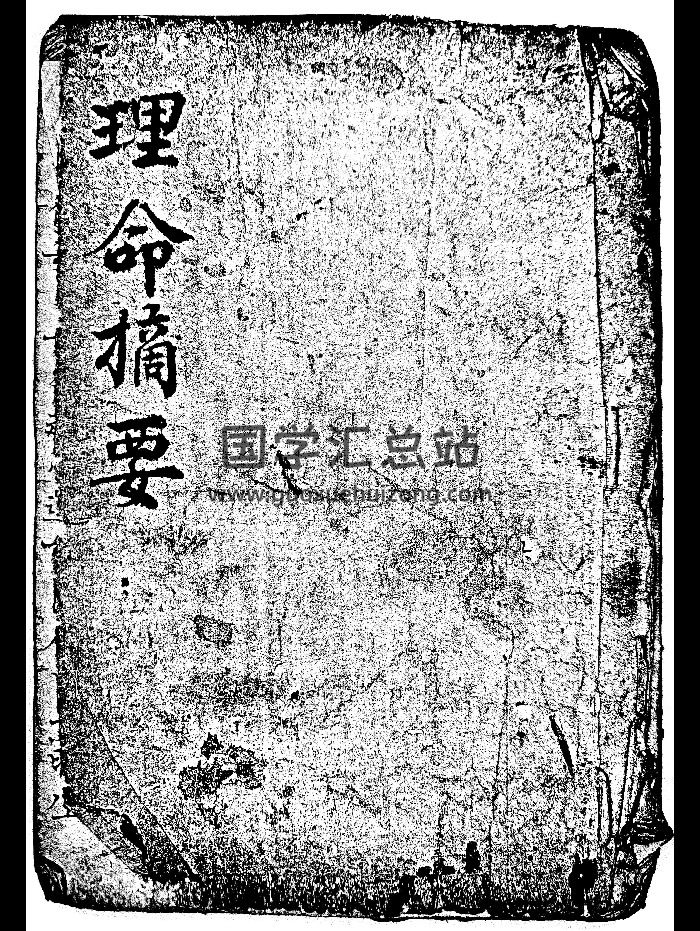 理命摘要
国学汇总站
www.guoxuehuizong.com